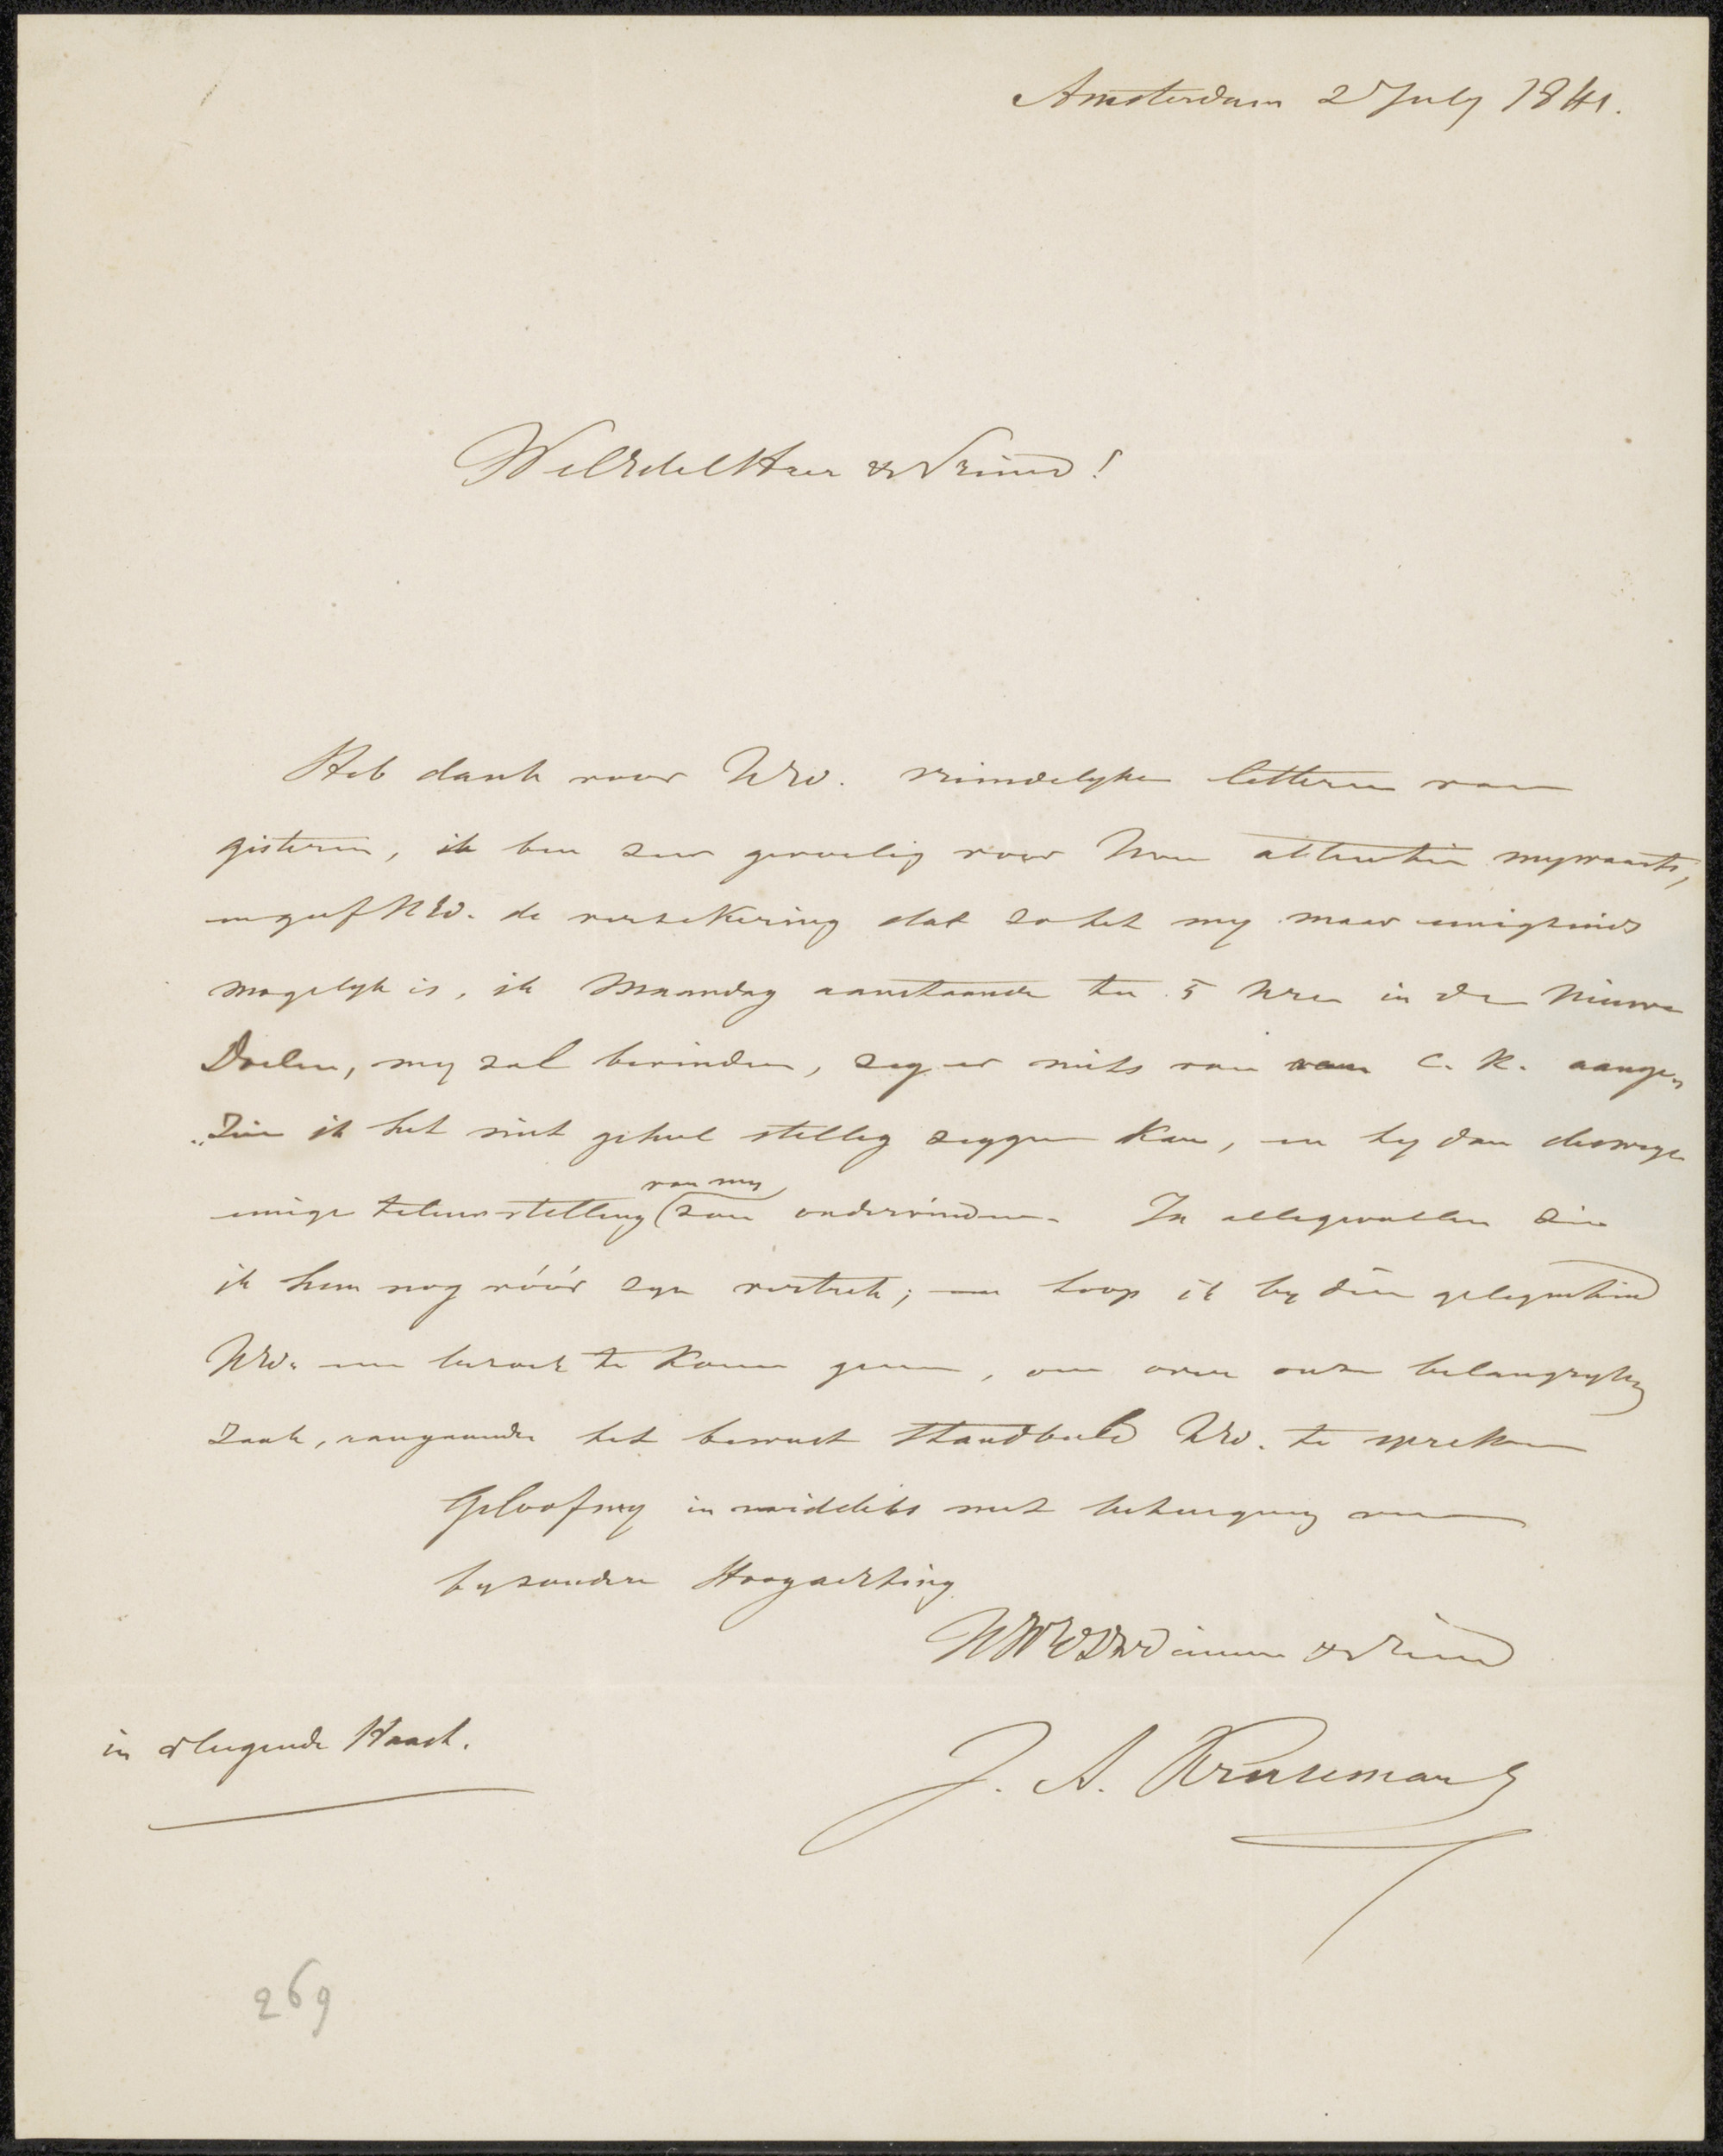 Amsterdam 2 July 1841.
WelEdel Heer & Vriend!
Heb dank voor UEd. vriendelyke letteren van
gisteren, ik ben zeer gevoelig voor Uwe attentie mywaarts,
en geef UEd. de verzekering dat zo het my maar eenigzins
mogelyk is, ik Maandag aanstaande ten 5 Ure in de Nieuwe
Doelen, my zal bevinden, zeg er niets van aan C. K. aange„
„zien ik het niet geheel stellig zeggen kan, en hy dan deswege
van my
eenige teleurstelling zou ondervinden. In allegevallen zie
ik hem nog vóór zyn vertrek; en hoop ik by die gelegenheid
UEd. een bezoek te komen geven, om over onze belangryke
zaak, aangaande het bewust Standbeeld UEd. te spreken
Geloof my inmiddels met betuiging van
byzondere Hoogachting
UWEDDw Dienaar & Vriend
in vliegende Haast.
J. A. Kruseman
269